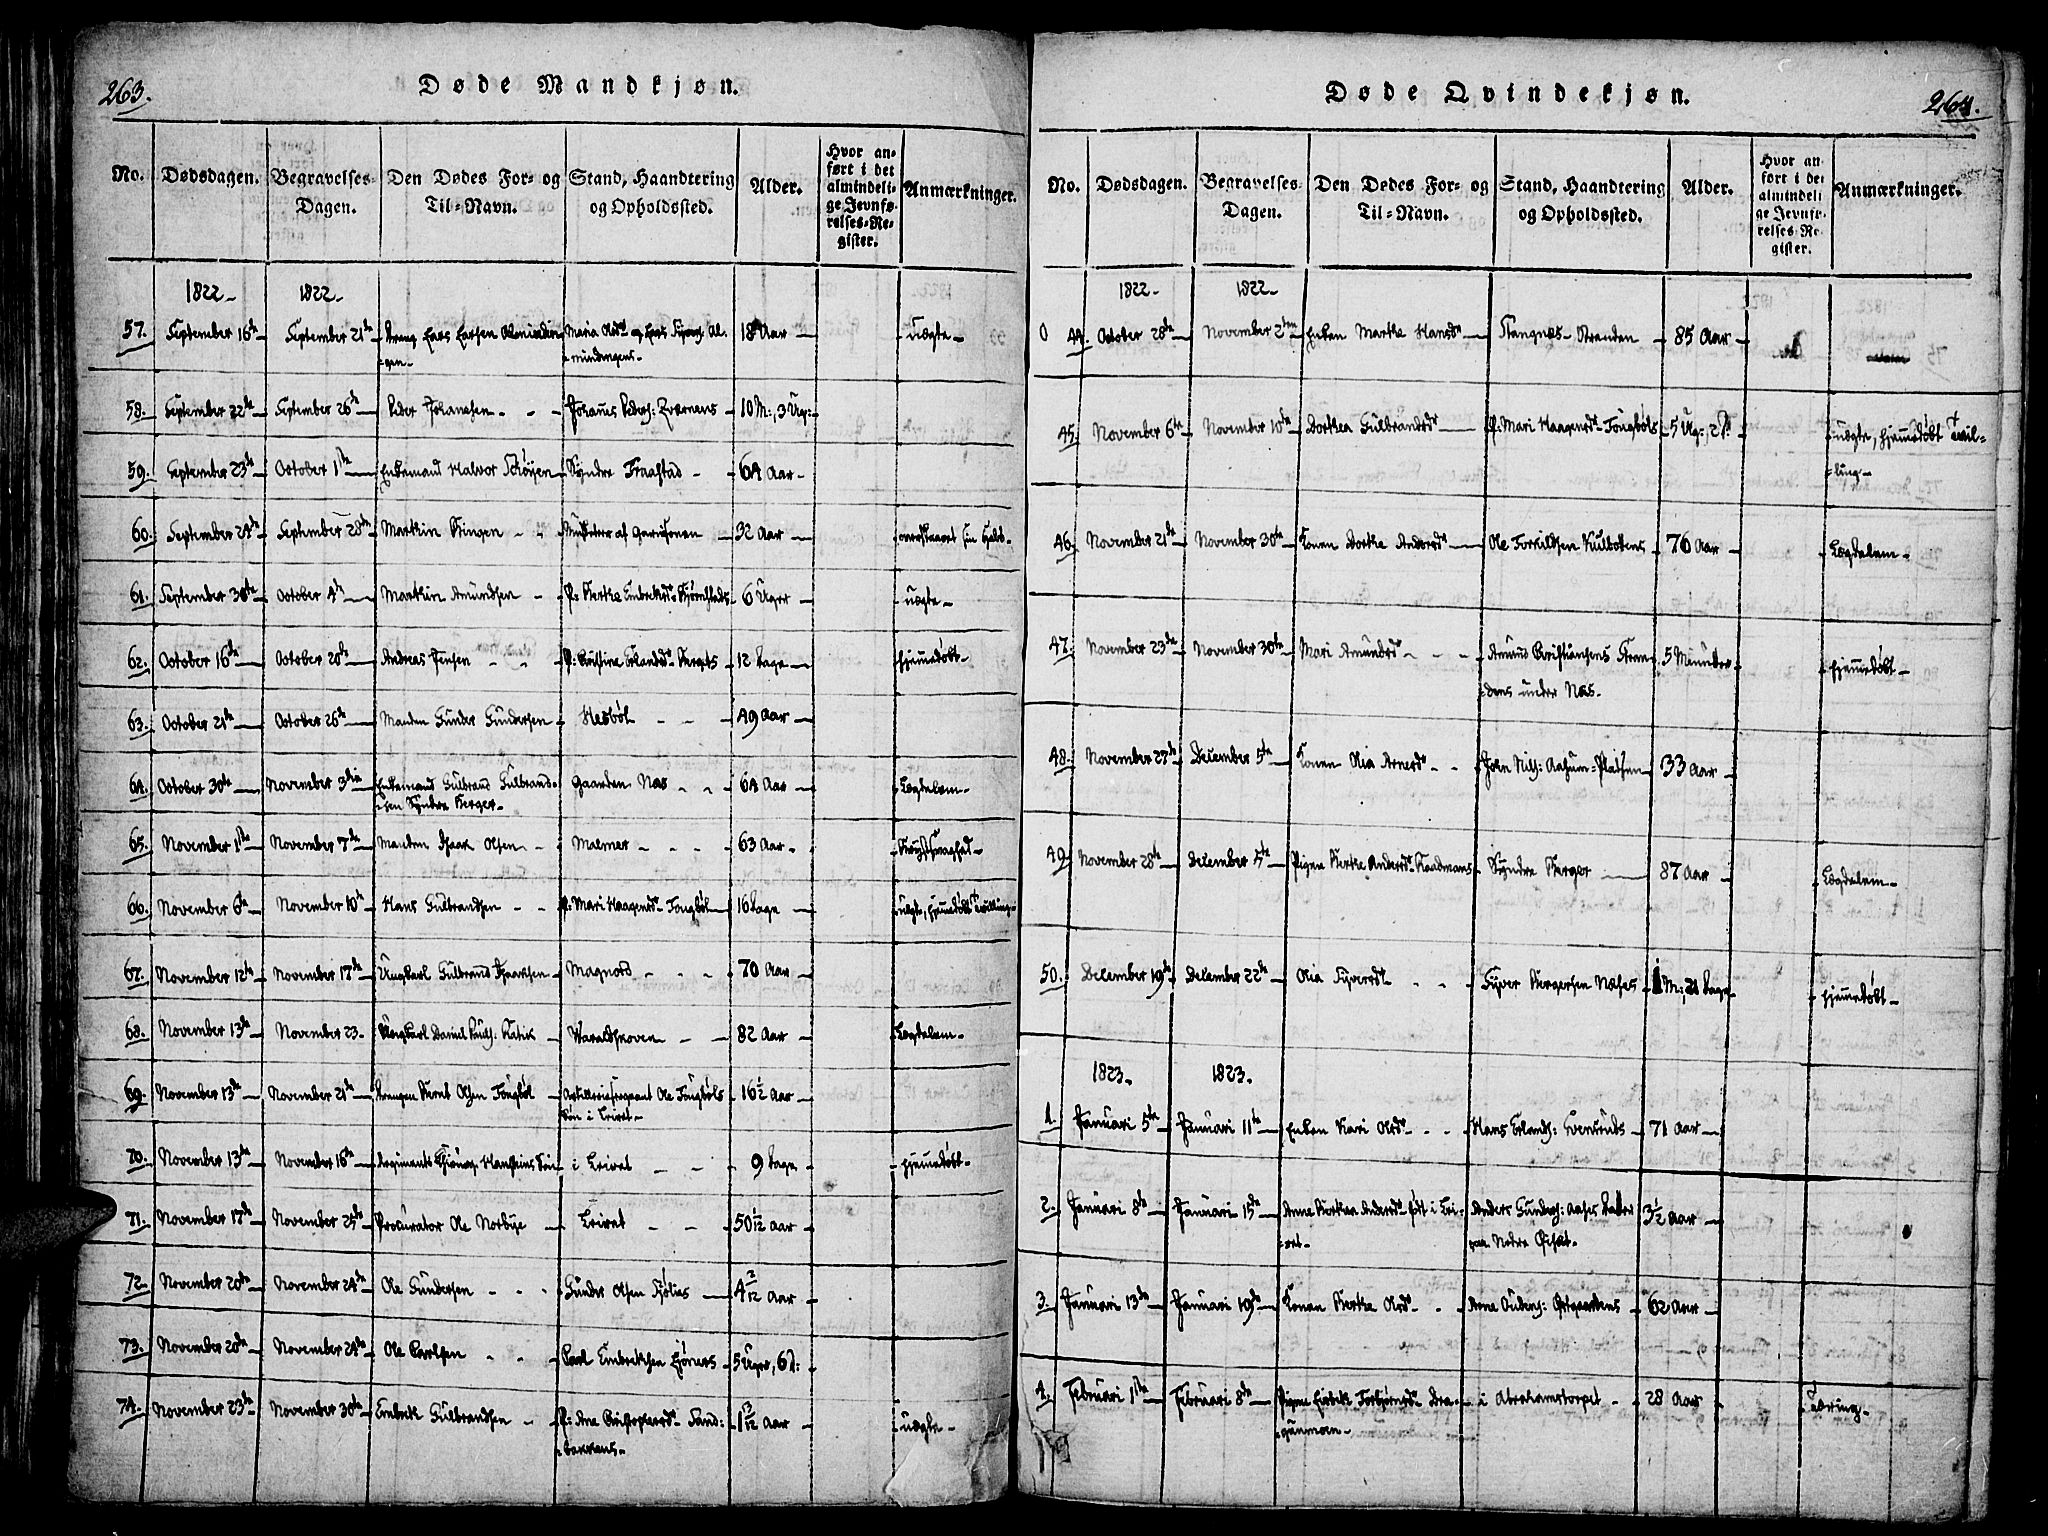 263.
Døde Mandkjøn.
No. Dødsdagen. Begravelses-Dagen. Den Dødes For- og Til-Navn. Stand, Haandtering og Opholdssted. Alder. Hvor anført i det almindelige Jevnførelses-Register. Anmærkninger.
1822- 1822-
57. September 16de September 21de Dreng Lars Larsen Alminding
gen- Maria Olsdr og Lars Al
mindingens- 18 Aar uægte-
58. September 22de September 26de Peder Johansen - - Johanes Peders: Tværnæs 10 M:, 3 Ug:
59. September 23de October 1ste Enkemand Halvor Søndre Fraastad - 64 Aar
60. September 24de September 28de Marthin Ringen - Musketer af Garnisonen 32 Aar
61. September 30te October 4de Marthin Amundsen - P: Berthe Embrethsdr 6 Uger uægte-
62. October 16de October 20de Andreas Jensen - - P: Christine Erlandsdr Bergets 12 Dage hjemmedøbt-
63. October 21de October 26de Manden Gunder Gundersen Hesbøl - - 49 Aar
64. October 30te November 3die Enkemand Gulbrand Gulbrand-
sen Søndre Berger- Gaarden Næs - - 64 Aar Lægdslem-
65. November 1ste November 7de Manden Isaac Olsen - Malmer - - - 63 Aar
66. November 6te November 10de Hans Gulbrandsen - - P: Mari Haagensdr Tougbøl 16 Dage uægte, hjemmedøbt Tvilling-
67. November 12te November 17de Ungkarl Gulbrand Isaacsen Magnord - - - 70 Aar
68. November 13de November 23- Ungkarl Daniel Pauls: Haraldskoven - - 82 Aar Lægdslem-
69. November 13de November 21de Drengen Bernt Olsen Tougbøl Artillerisergeant Ole Tougbøls
Søn i Leiret- 16½ Aar
70. November 13de November 16de Regiments Chirurg: Hansteins Søn i Leiret - - 9 Dage hjemmedøbt-
71. November 17de November 25de Procurator Ole Norbye - Leiret - - 50 1/12 Aar
72. November 20de November 24de Ole Gundersen - - - Gunder Olsen Sjølies 4 2/12 Aar
73. November 20de November 24de Ole Carlsen - - Carl Embrethsen 5 Uger, 6 D:
74. November 23de November 30te Embret Gulbrandsen - P: Ane Christophersdr Sand:
bakkens- 1 3/12 Aar uægte-
264.
Døde Qvindekjøn.
No. Dødsdagen. Begravelses-Dagen. Den Dødes For- og Til-Navn. Stand, Haandtering og Opholdssted. Alder. Hvor anført i det almindelige Jevnførelses-Register. Anmærkninger.
1822- 1822-
44. October 28de November 2den Enken Marthe Hansdr Stangnæs-Stranden 85 Aar
45. November 6te November 10de Dorthea Gulbrandsdr P: Mari Haagensdr Tougbøls 5 Ug:, 2 D: uægte, hjemmedøbt Tvil-
ling-
46. November 21de November 30te Konen Dorthe Andersdr Ole Torkildsen Kulbotens 76 Aar Lægdslem-
47. November 23de November 30te Mari Amundsdr - - - Amund Christiansens Stran
dens under Næs- 5 Maaneder hjemmedøbt-
48. November 27de December 5te Konen Olia Arnesdr - - John Nils: Aasum-Pladsen 33 Aar
49. November 28de December 5te Pigen Berthe Andersdr Kaadmans Søndre Berger 87 Aar Lægdslem-
50. December 19de December 22de Olia Syversdr - - - Syver Bergersen Næsets 1 M:, 21 Dage hjemmedøbt-
1823- 1823-
1. Januari 5te Januari 11te Enken Kari Olsdr - - - Hans Erlands: Evensruds 71 Aar
2. Januari 8de Januari 15de Anne Berthea Andersdr født i Lei-
ret- Anders Gunders: Aases Datter
paa Nedre 3½ Aar
3. Januari 13de Januari 19de Konen Berthe Olsdr - - Arne 62 Aar
4. Februari 1ste Februari 8de Pigen Torbjørnsdr Dra-
gunmoen- i Abrahamstorpet - 28 Aar Tæring-